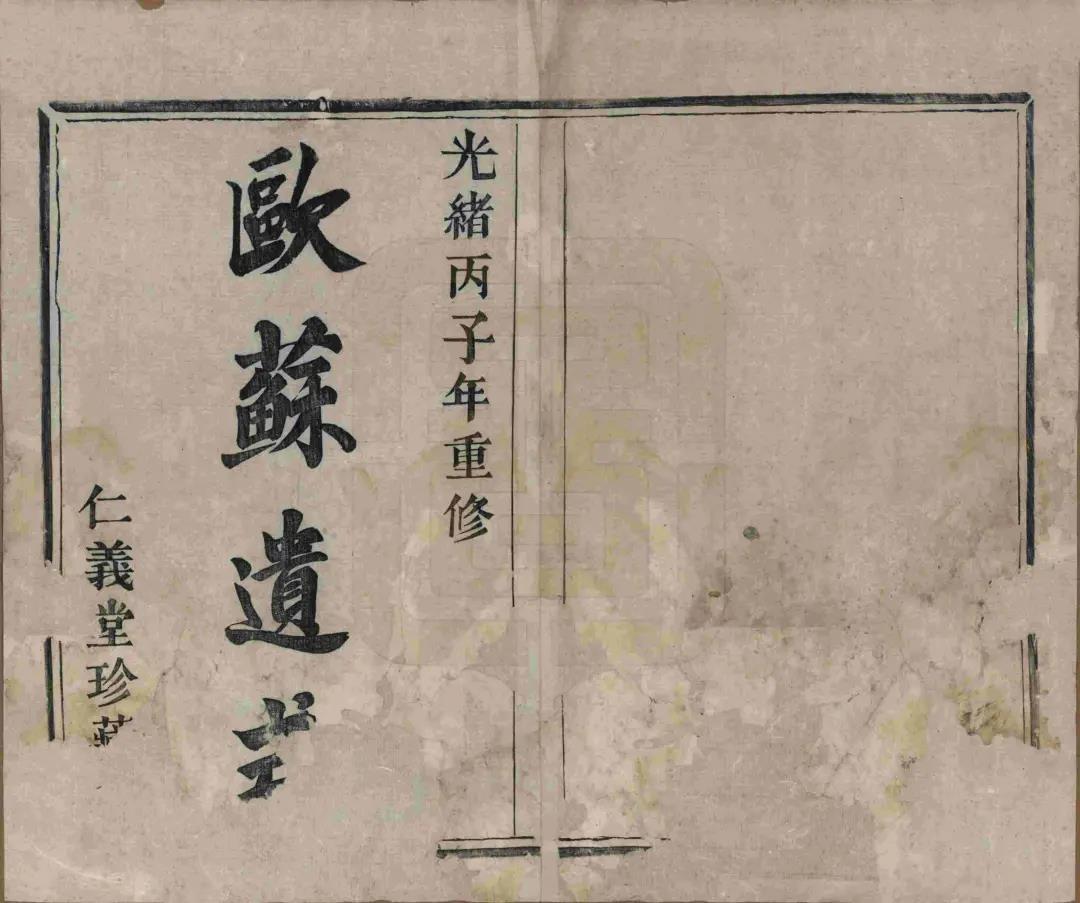 光緒丙子年重修
歐蘇遺
仁義堂珍